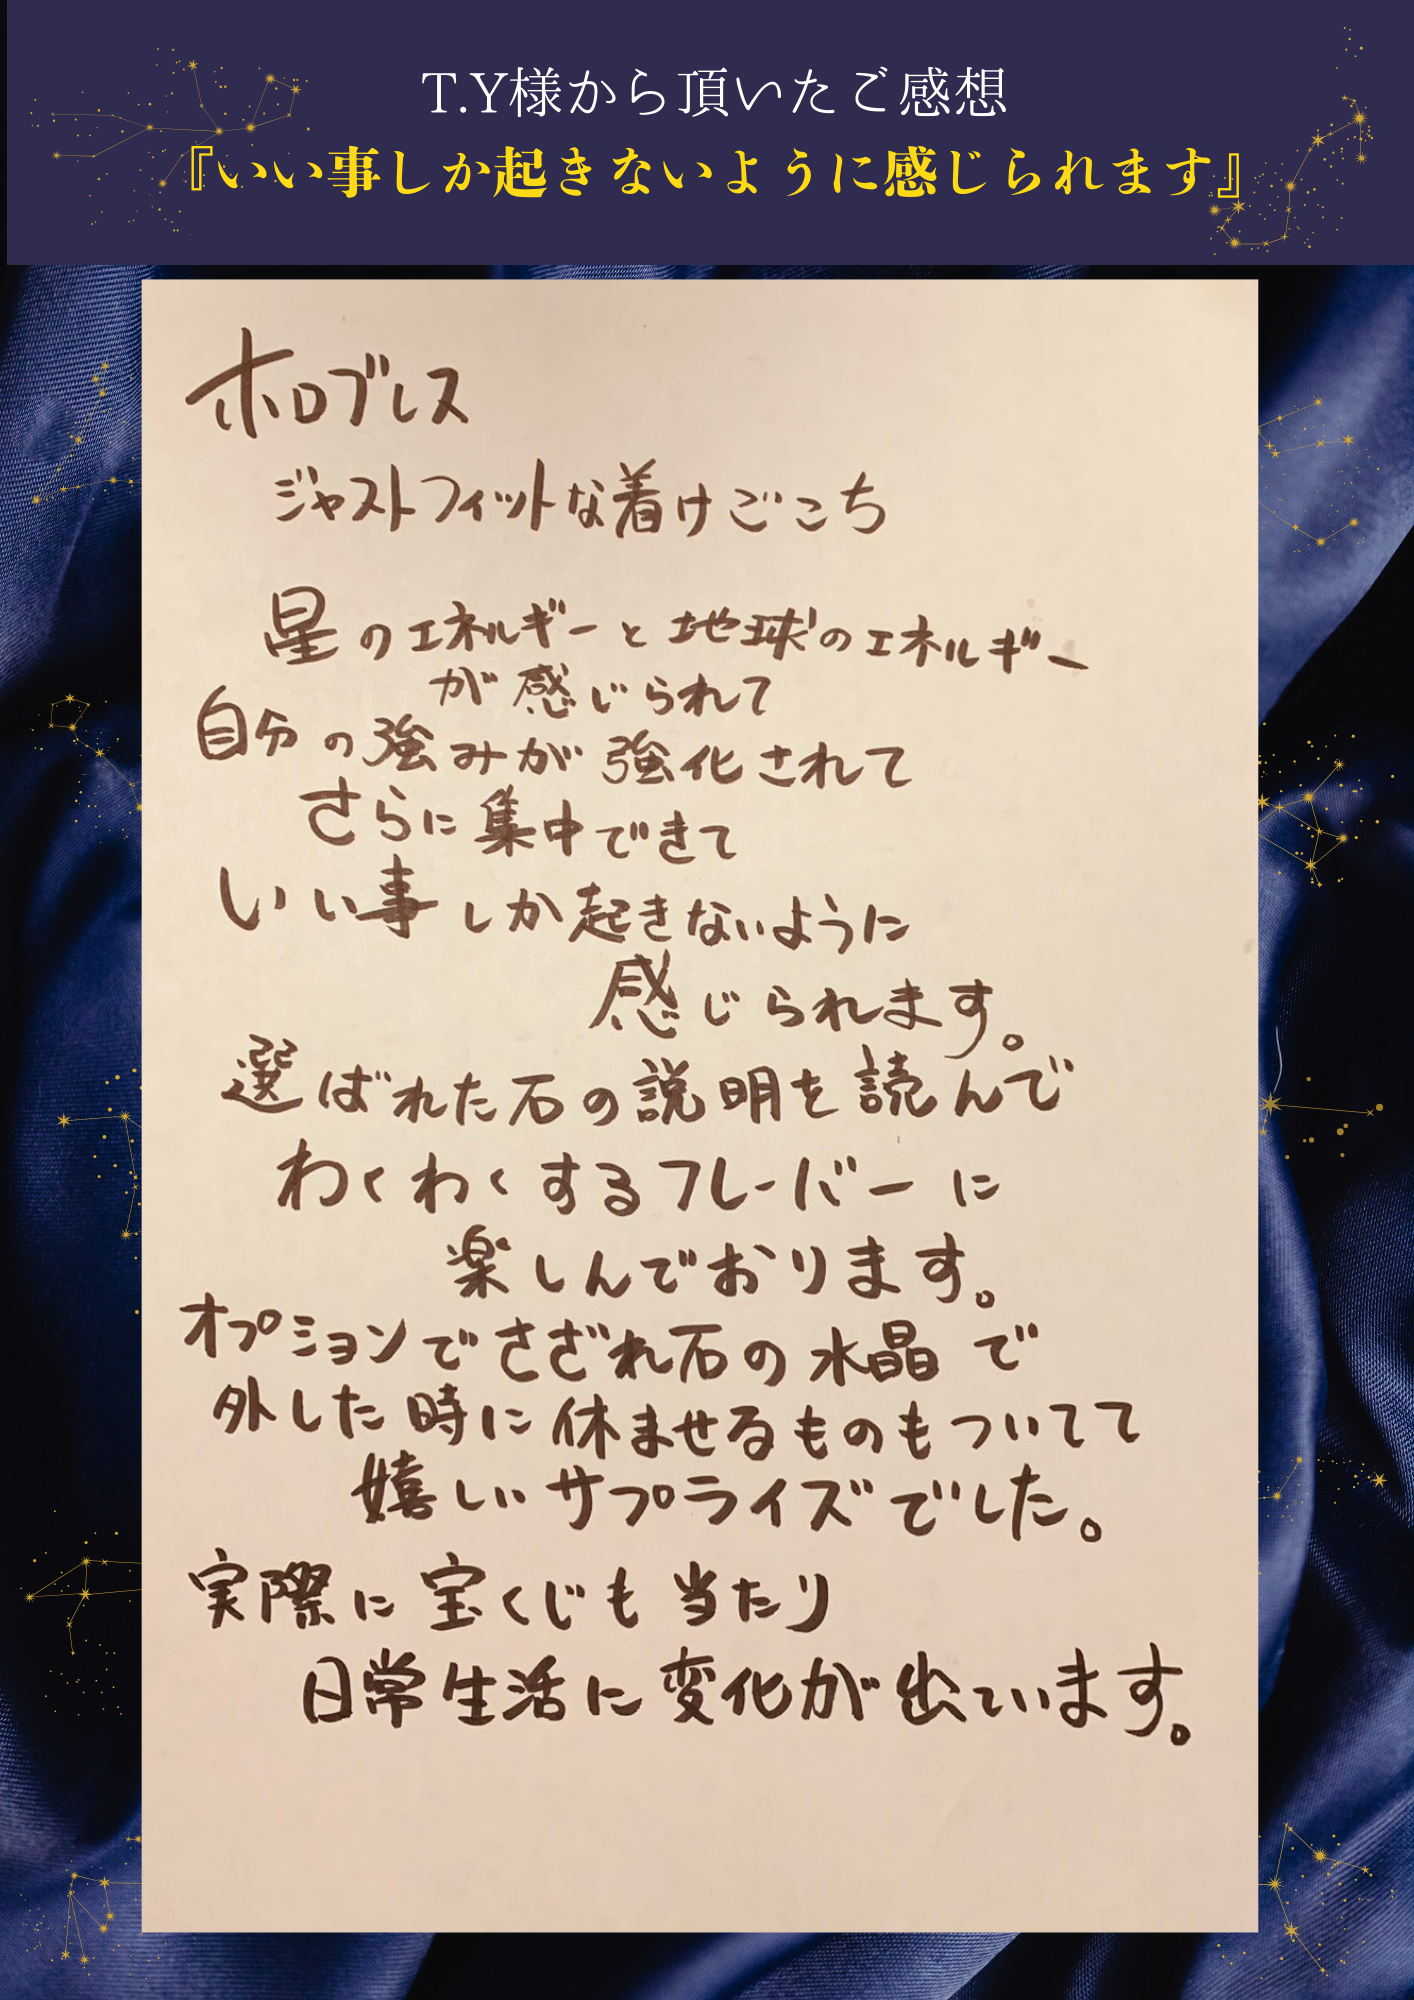 T.Y様から頂いたご感想
『いい事しか起きないように感じられます』
ホロブレス
ジャストフィットな着けごこち
星のエネルギーと地球のエネルギー
が感じられて
自分の強みが強化されて
さらに集中できて
いい事しか起きないように
感じられます。
選ばれた石の説明を読んで
わくわくするフレーバーに
楽しんでおります。
オプションでさざれ石の水晶で
外した時に休ませるものもついてて
嬉しいサプライズでした。
実際に宝くじも当たり
日常生活に変化が出ています。